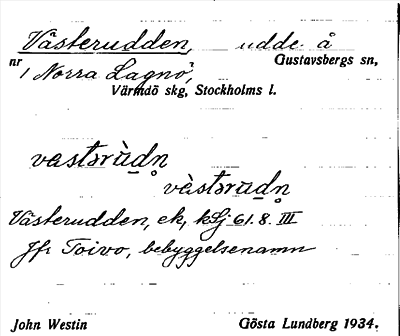 Västerudden, udde å
nr 1 Norra Lagnö, Gustavsbergs sn,
Värmdö skg, Stockholms l.
vastərùdn̥
vȧ̀stərudn̥
Västerudden, ek, kLj 61.8. III
Jfr Toivo, bebyggelsenamn
John Westin Gösta Lundberg 1934.